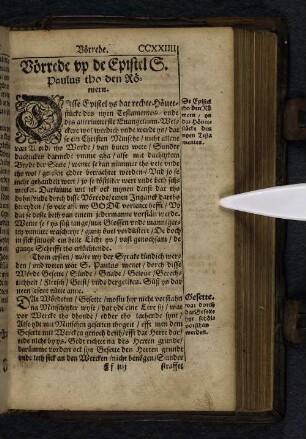 Vörrede. CCXXIIII
Vörrede vp de Epistel S.
Paulus tho den Rö-
mern.
Disse Epistel ys dat rechte Höuet-
stücke des nyen Testamentes / vnde
dat alle
se ein Christen Minsche / nicht allene
van Word tho Worde / van buten wete / Sunder
dachliken darmede vmme gha / alse mit dachlykem
Brode der Seele / wente se kan nümmer tho vele vnde
tho wol gelesen edder betrachtet werden / Vnd yo se
mehr gehandelt wert / yo se köstliker wert vnde beth schme-
cket. Darumme wil ick ock mynen denst dar tho
dohn / vnde dorch disse Vörrede / einen Ingang dartho
bereiden / so vele alse my GODT vorlenet hefft / Vp
dat se deste beth van einem jedermanne vorstan werde.
Wente se ys süs lange mit Glossen vnde
vordüstert / De doch
in sick sülvest ein helle Licht ys / vast genochsam / de
gantze Schrifft tho erlüchtende.
Thom ersten / möte wy der Sprake kündich wer-
den / vnd weten wat S. Paulus menet / dorch disse
Wörde Gesette / Sünde / Gnade / Geloue / Gerech-
ticheit / Flesch / Geist / vnde dergeliken. Süs ys dar
neen lesent nütte anne.
Dat Wördeken / Gesette / mostu hyr nicht vorstahn
na Minschliker wyse / dat ydt eine Lere sy / wat
vor Wercke tho dhonde / edder tho latende synt /
Also ydt mit Minschen gesetten thogeit / effte men dem
Gesette mit Wercken genoch deith / efft dat Herte dar
vnde nicht by ys. Godt richtet na des Herten grunde /
darümme vordert ock syn Gesette des Herten grundt
vnde leth sick an den Wercken / nicht benögen / Sunder
ff iiij straffet
De Epistel
tho den Rö-
mern / ys
dat Höuet-
stücke des
nyen Testa-
mentes.
Gesette.
wat dorch
dat Gesette
hyr schölle
vorstahn
werden.